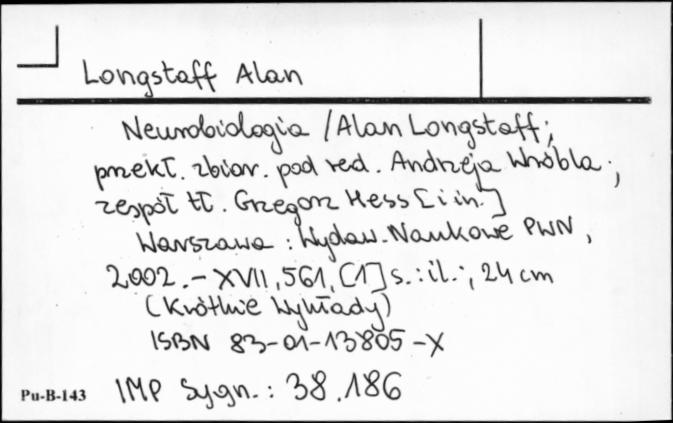 Longstaff Alan
Neurobiologia / Alan Longstaff ;
przekł. zbior. pod red. Andrzeja Wróbla ;
zespół tł. Grzegorz Hess [i in.]
Warszawa : Wydaw. Naukowe PWN,
2002. – XVII, 561, [1] s. : il. ; 24 cm
(Krótkie Wykłady)
ISBN 83-01-13805-X
Pu-B-143 IMP Sygn. : 38.186